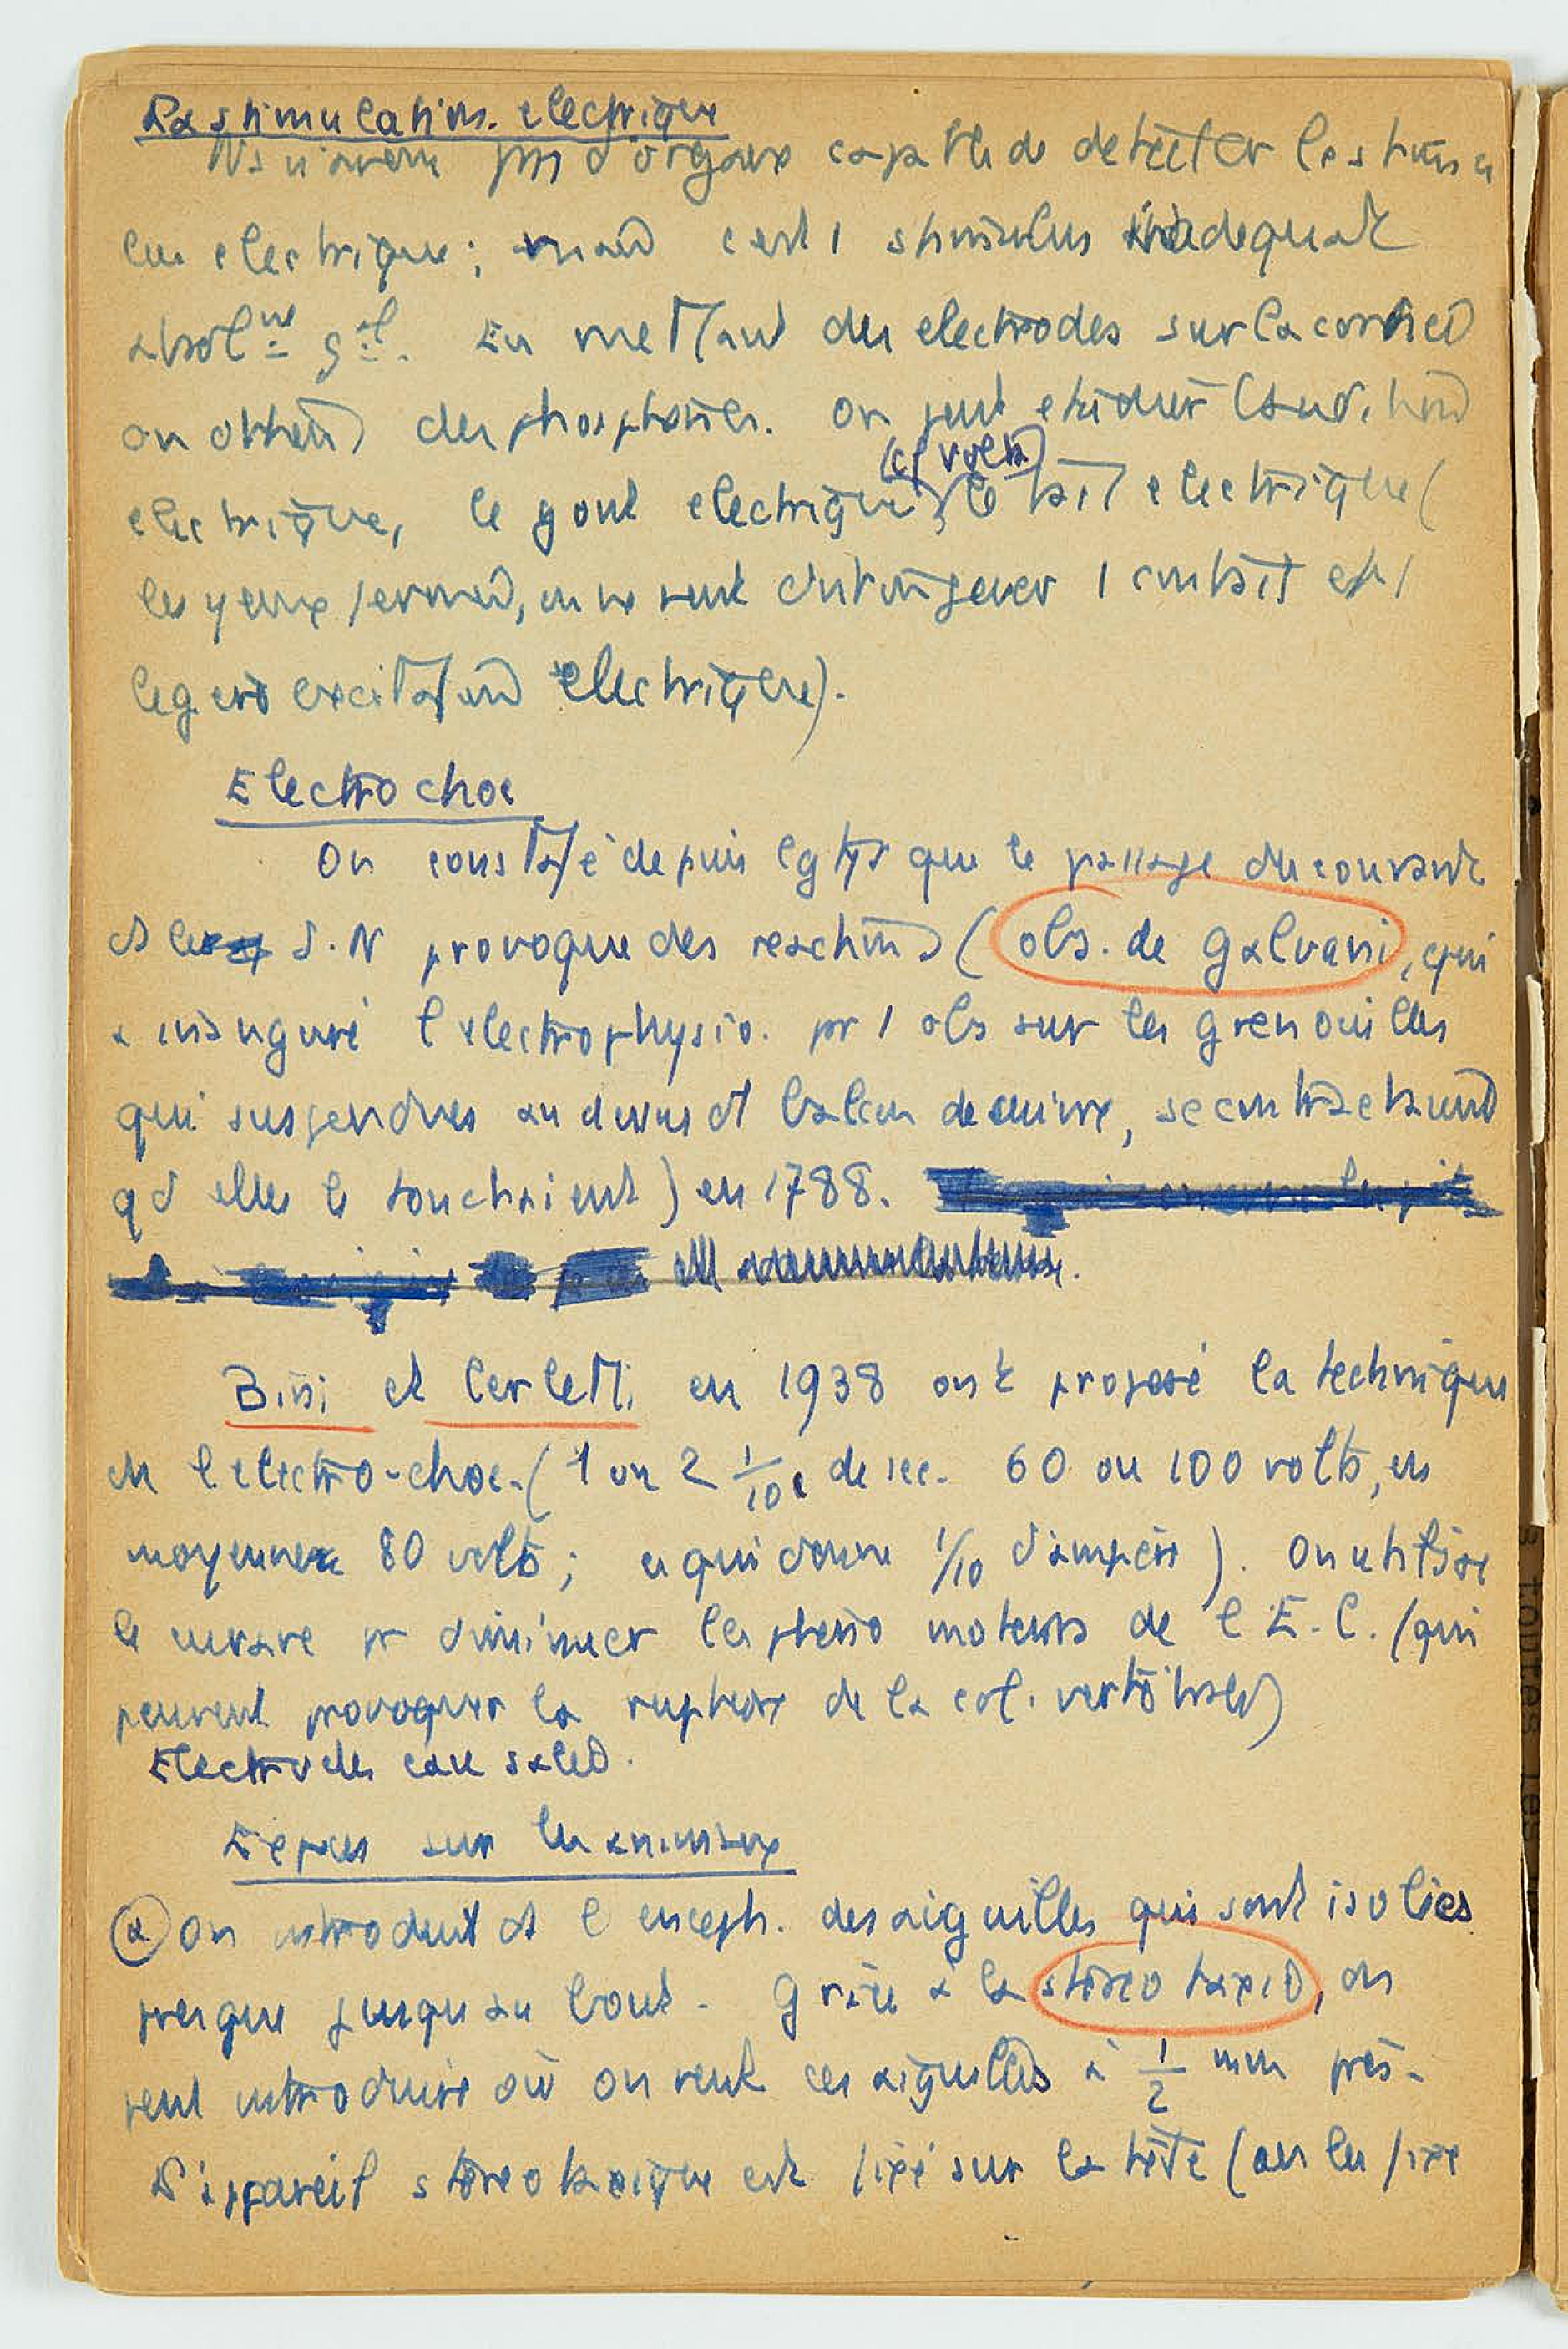 La stimulation électrique
Ns n'avons pas d'organe capable de détecter le stimu
lus électrique ; mais c'est 1 stimulus inadéquat
absolmt gal. En mettant des électrodes sur la cornée
on obtient des phosphènes. On peut étudier l'audition
(cf Volta)
électrique, le goût électrique, le tact électrique (
les yeux fermés, on ne peut distinguer 1 contact et 1
légère excitation électrique).
Electrochoc
On constate depuis lgtps que le passage du courant
ds le S.N provoque des réactions (obs. de Galvani, qui
a inauguré l'électrophysio. pr 1 obs sur les grenouilles
qui suspendues au dessus d' balcon de cuivre, se contractaient
qd elles le touchaient) en 1788.
Bini et Cerletti en 1938 ont proposé la technique
de l'électro-choc. (1 ou 2 1/10e de sec. 60 ou 100 volts, en
moyenne 80 volts ; ce qui donne 1/10 d'ampère). On utilise
le curare pr diminuer les phéno moteurs de l'E.C. (qui
peuvent provoquer la rupture de la col. vertébrale)
Electrodes eau salée.
sur les animaux
(a) On introduit ds l'enceph. des aiguilles qui sont isolées
presque jusqu'au bout. Grâce à la stéréotaxie, on
peut introduire où on veut ces aiguilles à 1/2 mm près.
L'appareil stéréotaxique est fixé sur la tête (on les fixe